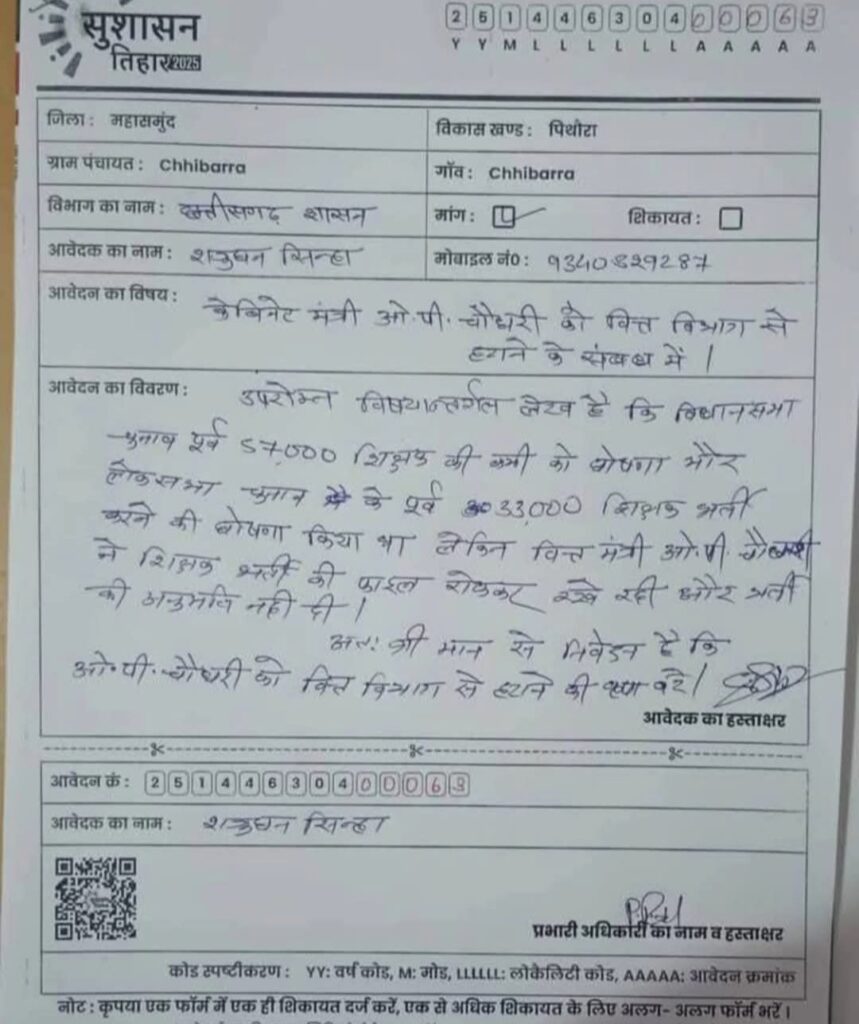 सुशासन
तिहार 2025
2 5 1 4 4 6 3 0 4 0 0 0 6 3
Y Y M L L L L L L A A A A A
जिला : महासमुंद
विकास खण्ड : पिथौरा
ग्राम पंचायत : Chhibarra
गाँव : Chhibarra
विभाग का नाम : छत्तीसगढ़ शासन
मांग :
शिकायत :
आवेदक का नाम : शत्रुघन सिन्हा
मोबाइल नं0 : 9340829287
आवेदन का विषय : केबिनेट मंत्री ओ.पी. चौधरी को वित्त विभाग से
हटाने के संबंध में |
आवेदन का विवरण : उपरोक्त विषयान्तर्गत लेख है कि विधानसभा
चुनाव पूर्व 57,000 शिक्षक की कमी को घोषणा और
लोकसभा चुनाव के पूर्व 33,000 शिक्षक भर्ती
करने की घोषणा किया था लेकिन वित्त मंत्री ओ.पी. चौधरी
ने शिक्षक भर्ती की फाइल रोककर रखे रही और भर्ती
की अनुमति नही दी |
अतः श्री मान से निवेदन है कि
ओ.पी. चौधरी को वित्त विभाग से हटाने की कृपा करें |
आवेदक का हस्ताक्षर
आवेदन कं : 2 5 1 4 4 6 3 0 4 0 0 0 6 3
आवेदक का नाम : शत्रुघन सिन्हा
प्रभारी अधिकारी का नाम व हस्ताक्षर
कोड स्पष्टीकरण : YY: वर्ष कोड, M: मोड, LLLLLL: लोकैलिटी कोड, AAAAA: आवेदन क्रमांक
नोट : कृपया एक फॉर्म में एक ही शिकायत दर्ज करें, एक से अधिक शिकायत के लिए अलग- अलग फॉर्म भरें |